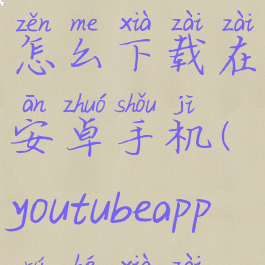 zěn me xià zài zài
怎么下载在
ān zhuó shǒu jī
安卓手机(
youtubeapp